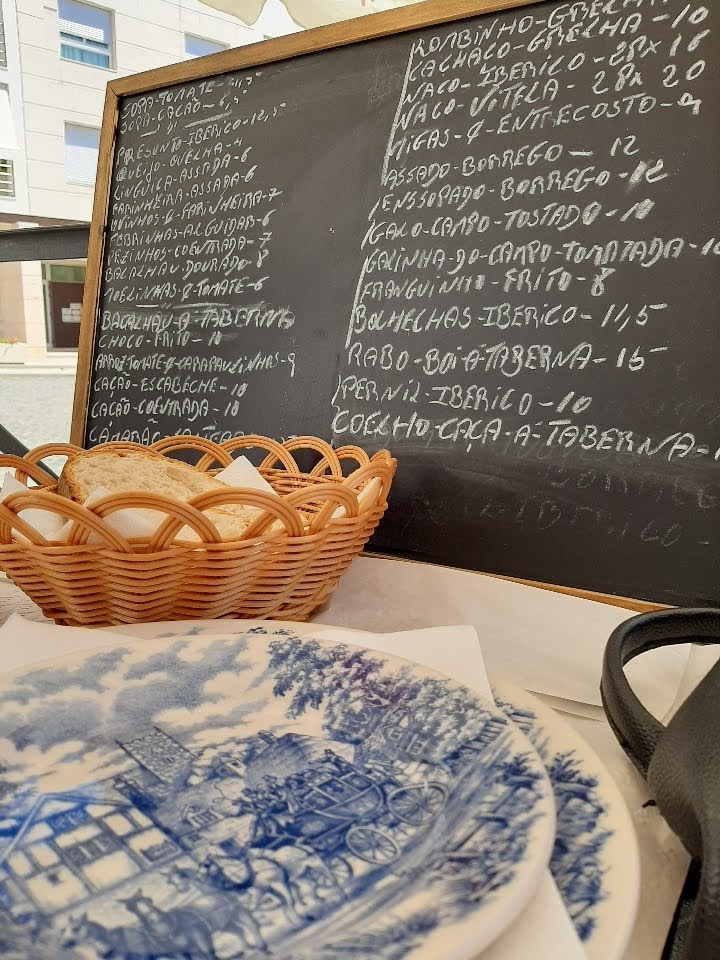 SOPA-TOMATE-
SOPA-CAÇÃO-6,
PRESUNTO-IBERICO-12,5
QUEIJO-OVELHA-4
LINGUIÇA-ASSADA-6
FARINHEIRA-ASSADA-6
OVINHOS-C-FARINHEIRA-7
FEBRINHAS-ALGUIDAR-6
PEZINHOS-COENTRADA-7
BACALHAU-DOURADO-8
MOELINHAS-C-TOMATE-6
BACALHAU-A-TABERNA
CHOCO-FRITO-10
ARROZ-TOMATE-C-CARAPAUZINHOS-9
CAÇÃO-ESCABECHE-10
CAÇÃO-COENTRADA-10
CAMARÃO
LOMBINHO-GRELHA
CACHAÇO-GRELHA-10
NACO-IBERICO-2PX 16
NACO-VITELA-2PX 20
MIGAS-C-ENTRECOSTO-9
ASSADO-BORREGO-12
ENSOPADO-BORREGO-12
GALO-CAMPO-TOSTADO-10
GALINHA-DO-CAMPO-TOMATADA-10
FRANGUINHO-FRITO-8
BOCHECHAS-IBERICO-11,5
RABO-BOI-A-TABERNA-15
PERNIL-IBERICO-10
COELHO-CAÇA-A-TABERNA-